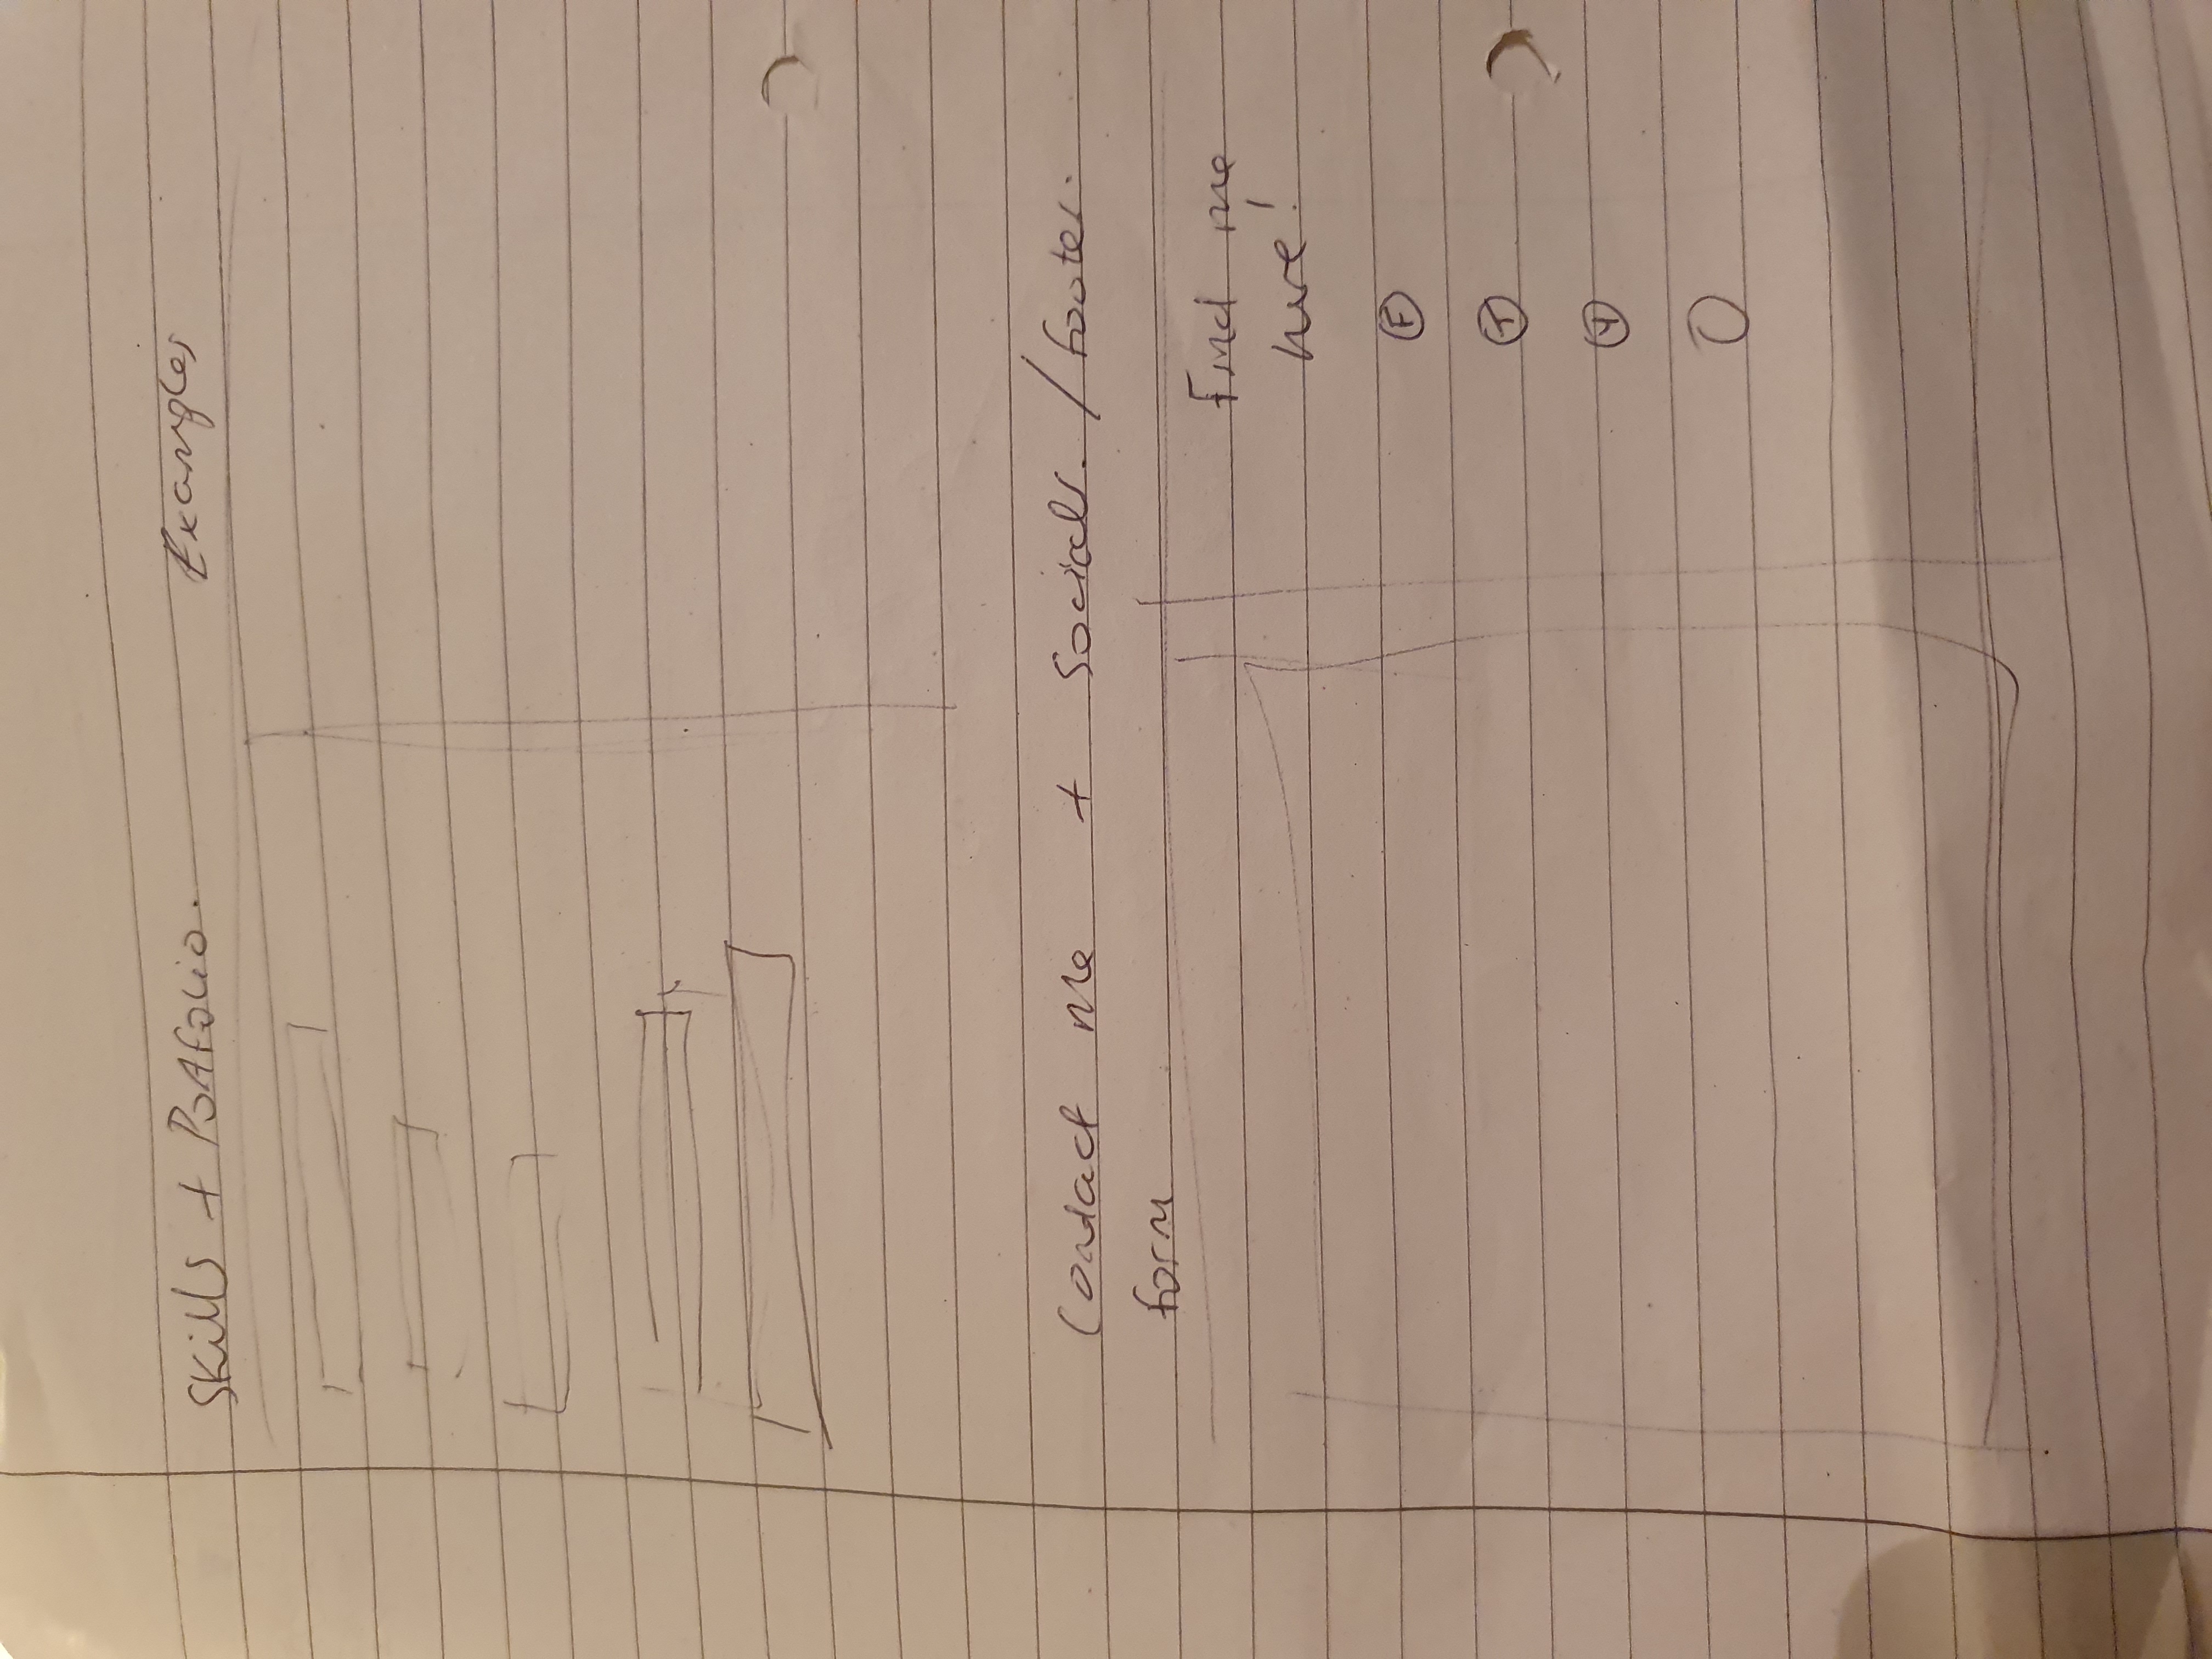 Skills + Portfolio. Examples
Contact me + Socials. / footer.
form
Find me
here!
F
T
Y